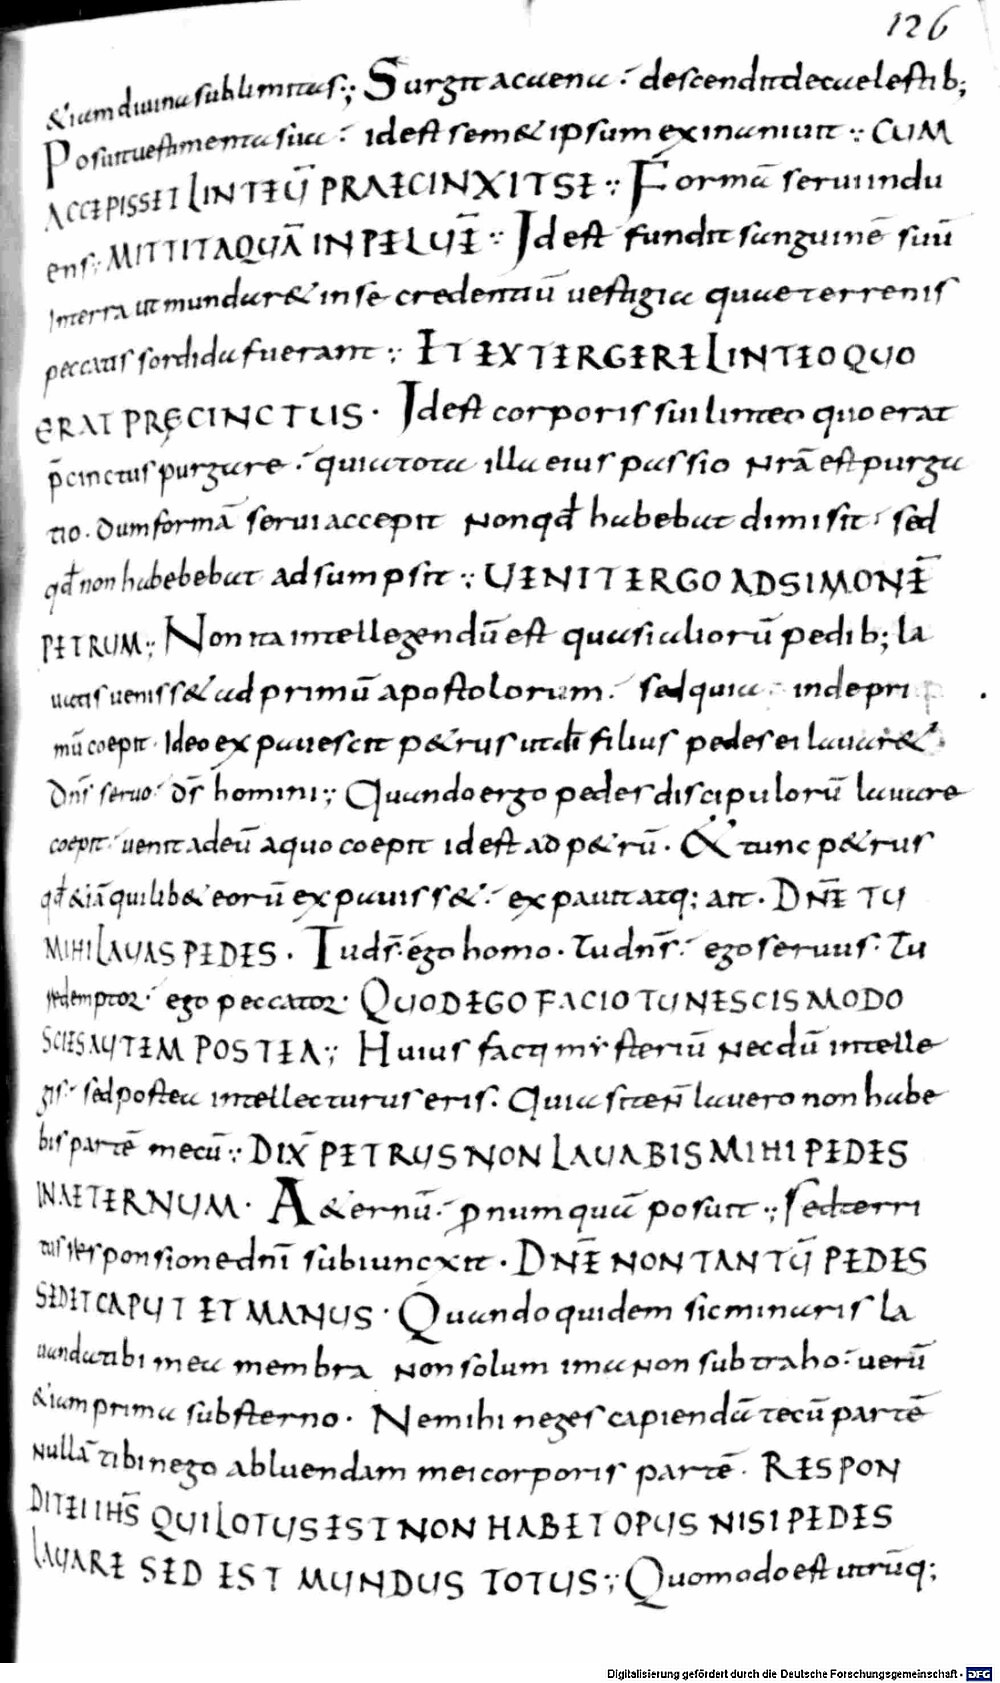 126
&iam diuina sublimitas; Surgit a caena; descendit de caelestib;
Posuit uestimenta sua; id est sem&ipsum exinaniuit; CUM
ACCEPISSET LINTEŪ PRAECINXIT SE; Formā serui indu
ens; MITTIT AQUĀ IN PELUĒ; Id est fundit sanguinē suū
in terra ut mundar& in se credentiū uestigia quae terrenis
peccatis sordida fuerant; ET EXTERGERE LINTEO QUO
ERAT PRĘCINCTUS. Id est corporis sui linteo quo erat
p̄cinctus purgare; quia tota illa eius passio nrā est purga
tio. Dum formā serui accepit nonqđ habebat dimisit; sed
qđ non habebebat adsumpsit; UENIT ERGO AD SIMONĒ
PETRUM; Non ita intellegendū est quasi aliorū pedib; la
uatisueniss& ad primū apostolorum; sed quia inde pri
mū coepit. Ideo expauescit p&rus ut dī filius pedes ei lauar&
Dn̄s seruo; ds̄ homini; Quando ergo pedes discipulorū lauare
coepit; uenit ad eū a quo coepit id est ad p&rū. & tunc p&rus
qđ &iā quilib& eorū expauiss&; expauit atq; ait. DN̄E TU
MIHI LAUAS PEDES. Tu ds̄; ego homo. Tu dn̄s; ego seruus. Tu
redemptor; ego peccator. QUOD EGO FACIO TU NESCIS MODO
SCIES AUTEM POSTEA; Huius facti mysteriū necdū intelle
gis; sed postea intellecturus eris. Quia si ten̄ lauero non habe
bis partē mecū; DIX̄ PETRUS NON LAUABIS MIHI PEDES
IN AETERNUM. A&ernū; ꝓ numquā posuit; Sed terri
tus responsione dnī subiuncxit. DN̄E NON TANTŪ PEDES
SED ET CAPUT ET MANUS. Quando quidem sic minaris la
uanda tibi mea membra non solum ima non subtraho; uerū
&iam prima substerno. Ne mihi neges capiendā tecū partē
nullā tibi nego abluendam mei corporis partē. RESPON
DIT EI IHS̄ QUI LOTUS EST NON HABET OPUS NISI PEDES
LAUARE SED EST MUNDUS TOTUS; Quomodo est utrūq;
Digitalisierung gefördert durch die Deutsche Forschungsgemeinschaft - DFG